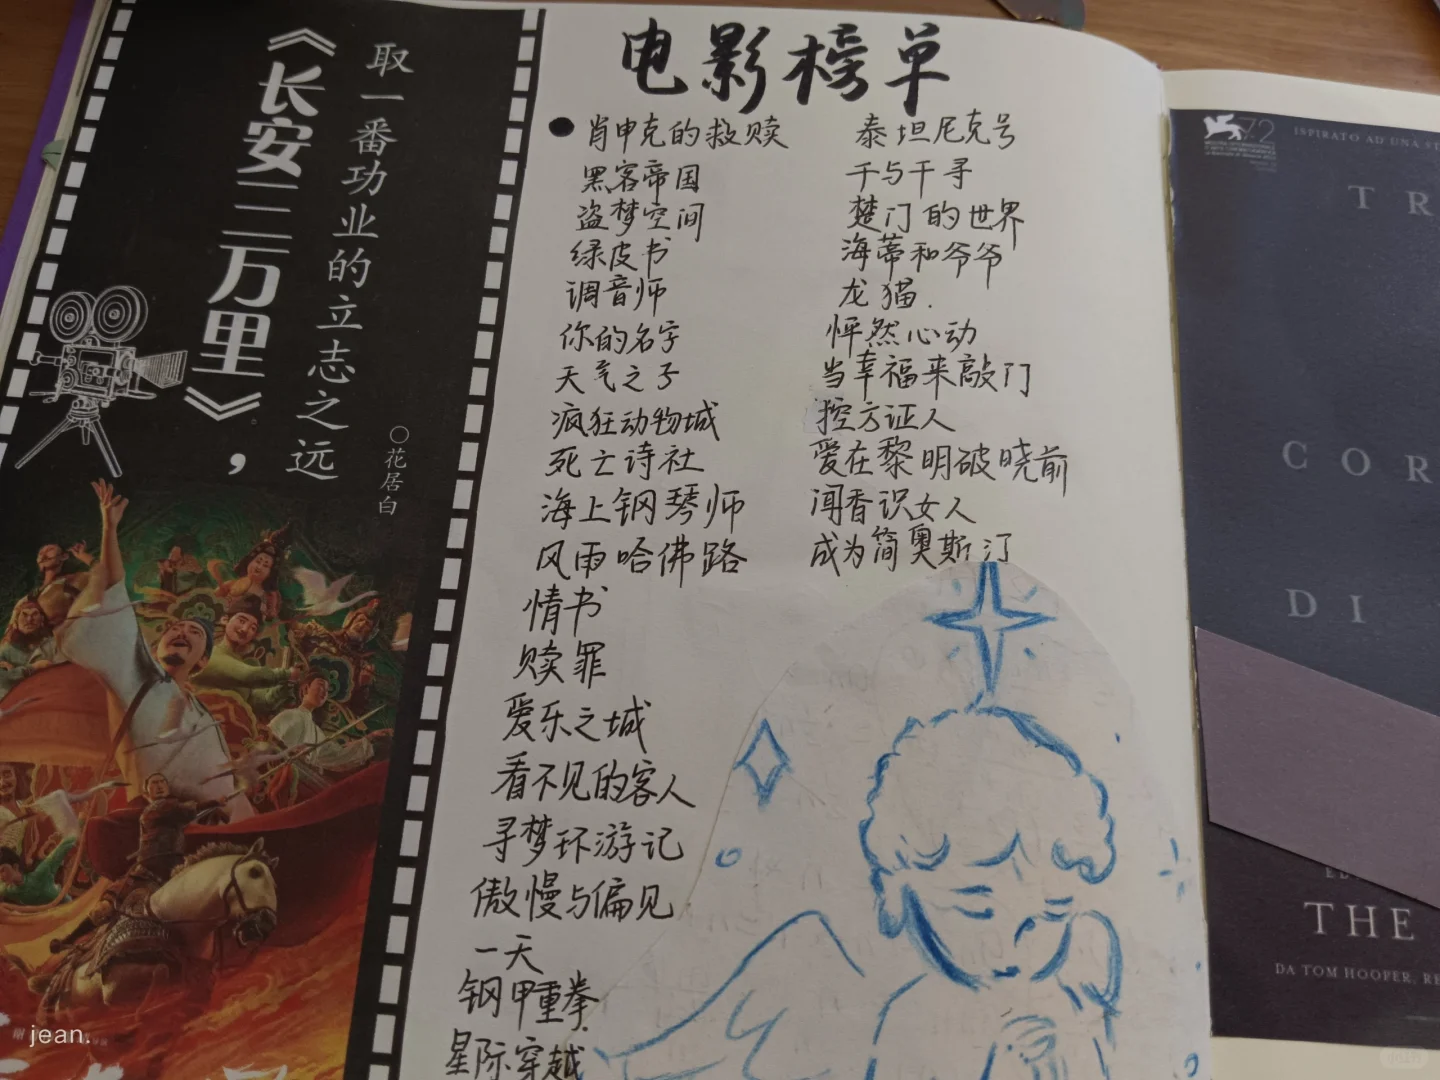 取一番功业的立志之远
《长安三万里》，
〇花居白
电影榜单
肖申克的救赎
黑客帝国
盗梦空间
绿皮书
调音师
你的名字
天气之子
疯狂动物城
死亡诗社
海上钢琴师
风雨哈佛路
情书
赎罪
爱乐之城
看不见的客人
寻梦环游记
傲慢与偏见
一天
钢甲重拳
星际穿越
泰坦尼克号
千与千寻
楚门的世界
海蒂和爷爷
龙猫.
怦然心动
当幸福来敲门
控方证人
爱在黎明破晓前
闻香识女人
成为简奥斯汀
72
ISPIRATO AD UNA
T R
C O R
D I
THE
DA TOM HOOPER,
jean.